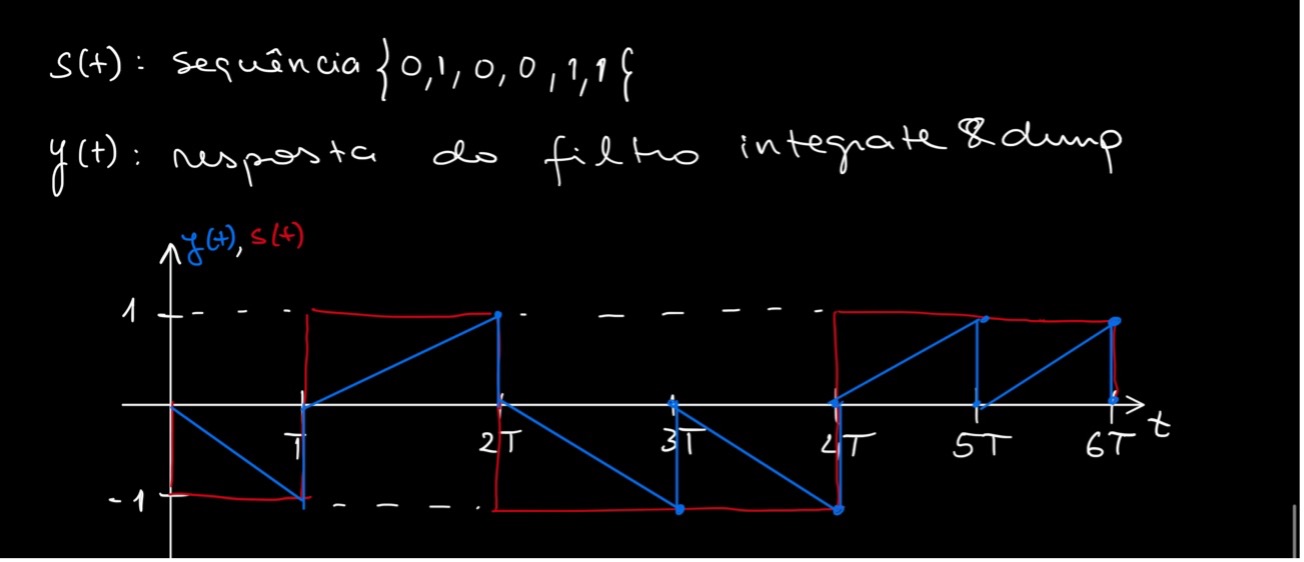 s(t): sequência }0,1,0,0,1,1{
y(t): resposta do filtro integrate & dump
y(t), s(t)
1
T 2T 3T 4T 5T 6T t
-1